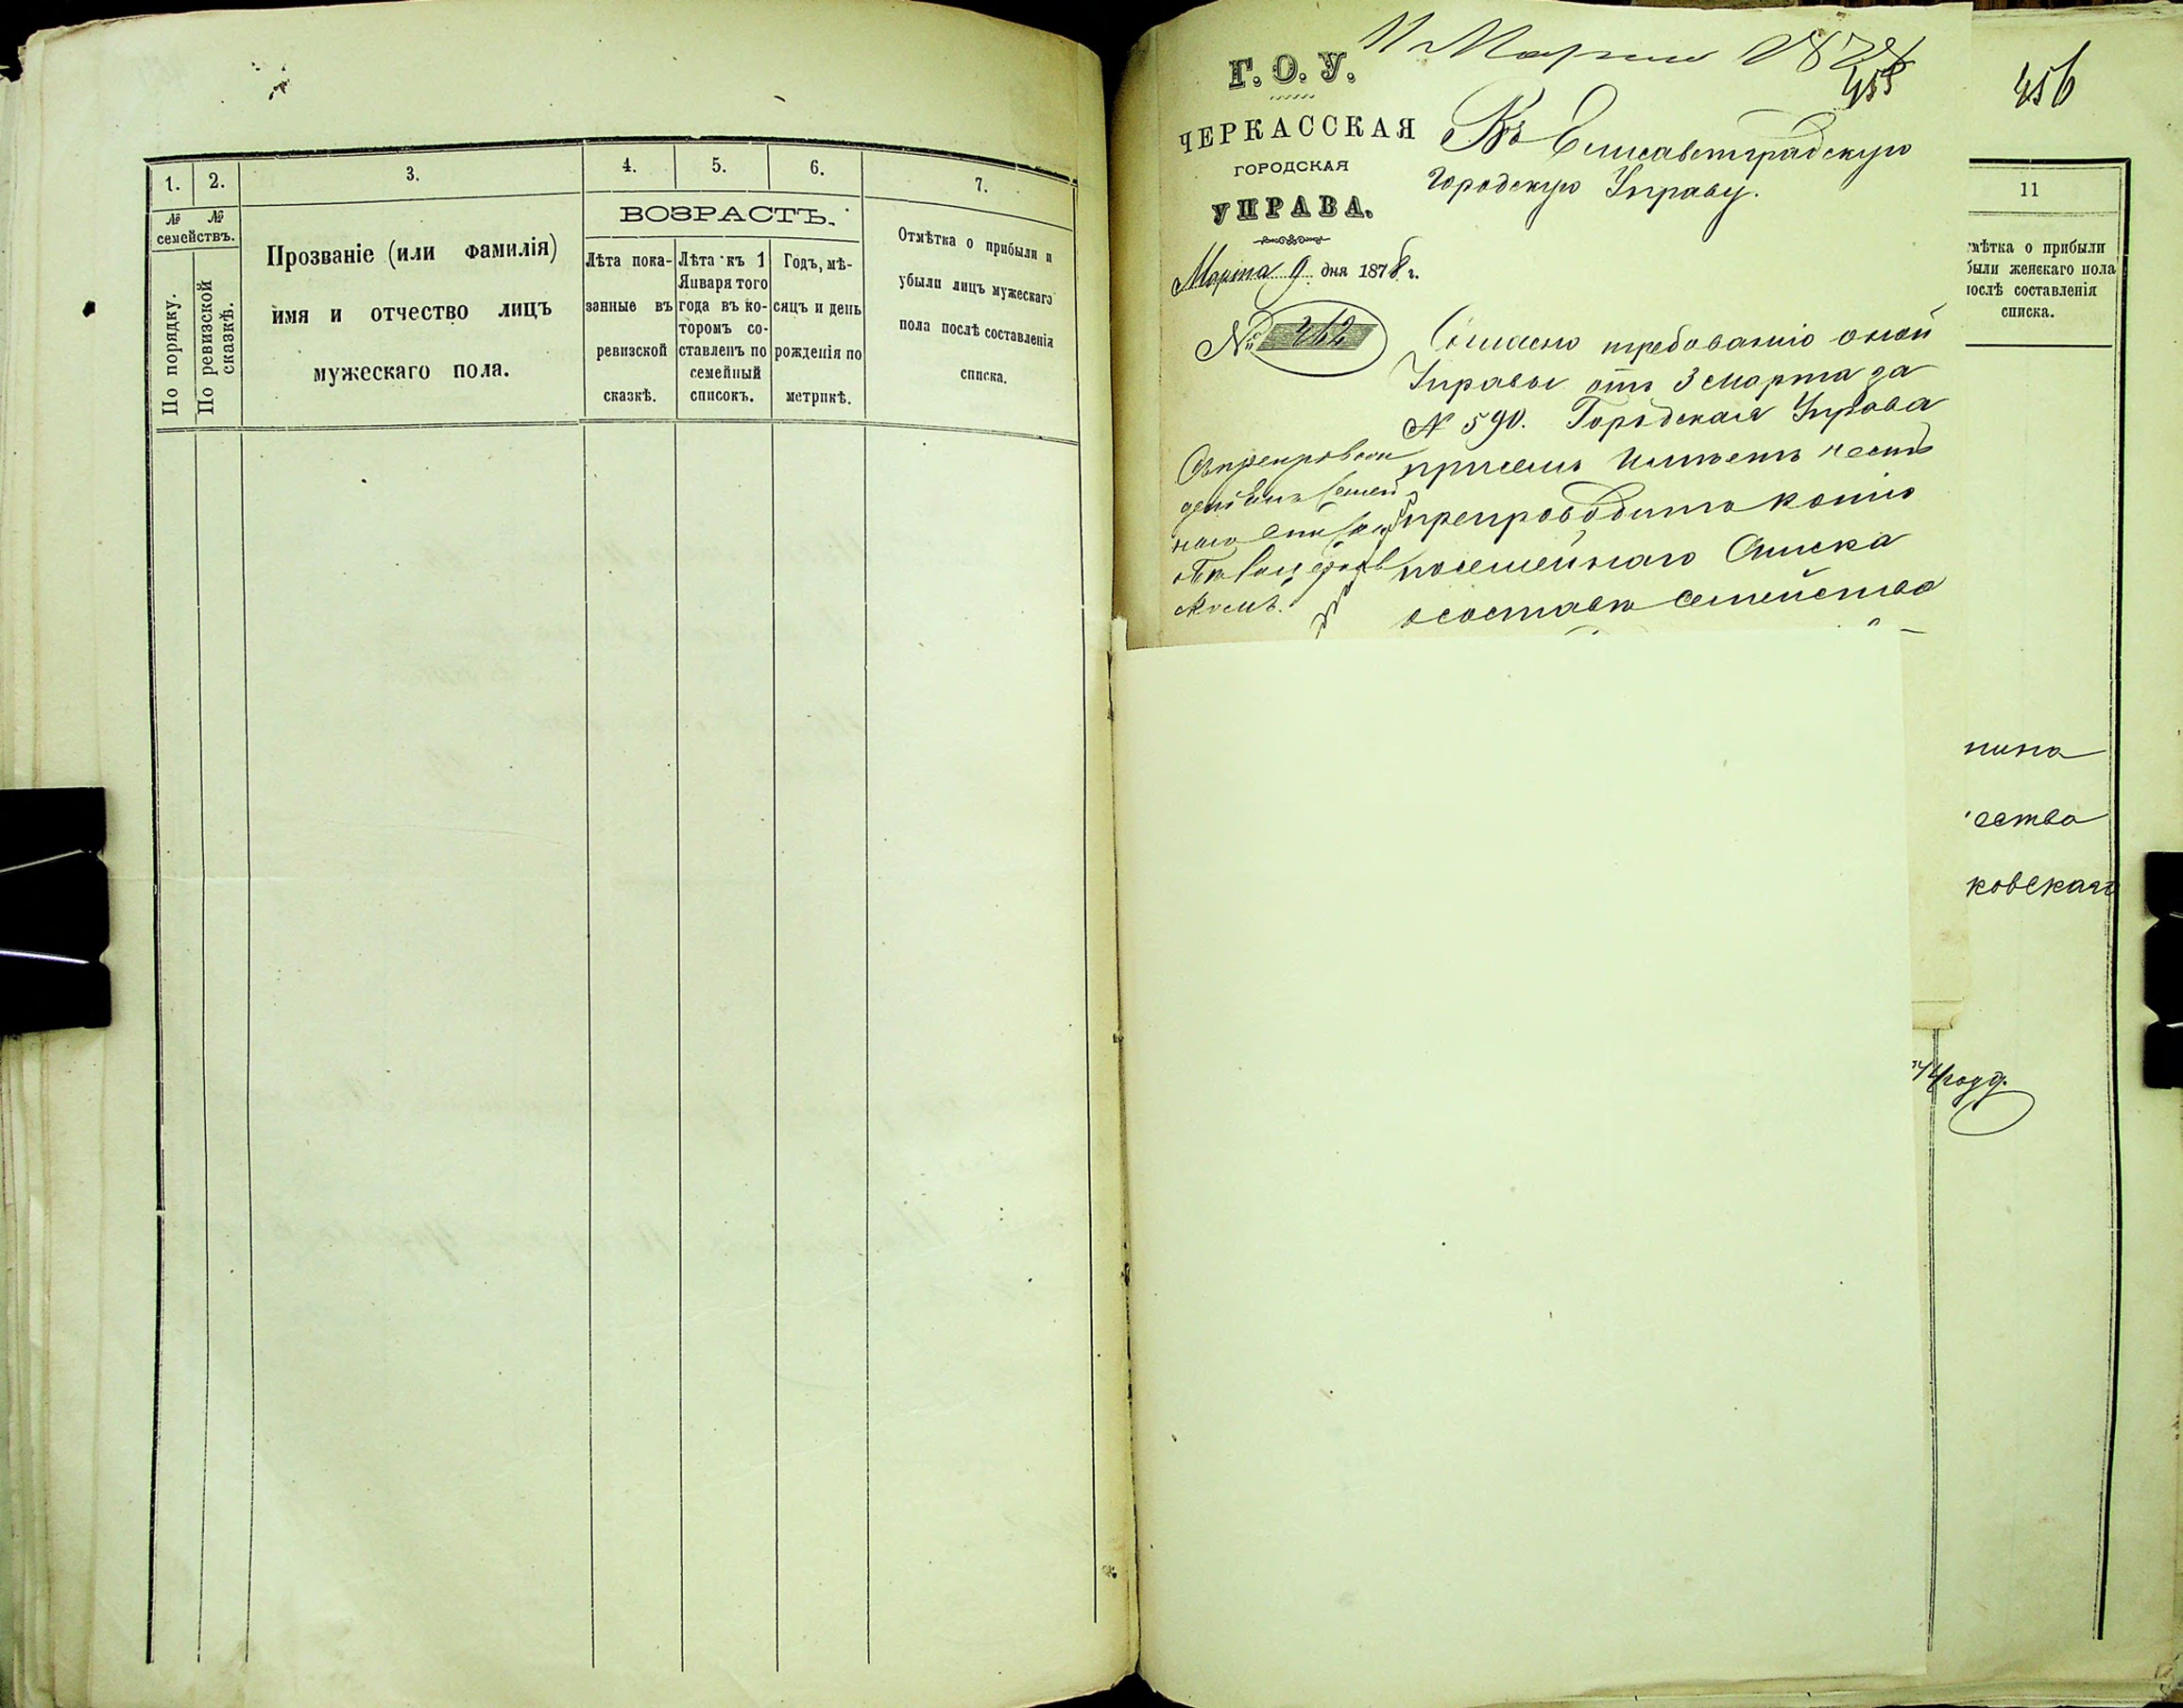 1.
2.
3.
4.
5.
6.
7.
№ № семействъ.
По порядку.
По ревизской сказкѣ.
Прозваніе (или фамилія)
имя и отчество лицъ
мужескаго пола.
ВОЗРАСТЪ.
Лѣта пока-
занные въ
ревизской
сказкѣ.
Лѣта къ 1
Января того
года въ ко-
торомъ со-
ставленъ по
семейный
списокъ.
Годъ, мѣ-
сяцъ и день
рожденія по
метрикѣ.
Отмѣтка о прибыли и
убыли лицъ мужескаго
пола послѣ составленія
списка.
11 Марта
455
Г. О. У.
ЧЕРКАССКАЯ
ГОРОДСКАЯ
УПРАВА.
Марта 9 дня 1878 г.
№ 462
Въ Елисаветградскую
Городскую Управу.
Согласно требованію оной
Управы отъ 3 Марта за
№ 590. Городская Управа
присемъ имѣетъ честь
препроводить копію
посемейнаго Списка
о составѣ Семейства
456
11
мѣтка о прибыли
были женскаго пола
послѣ составленія
списка.
нина
ества
ковскаго
году.